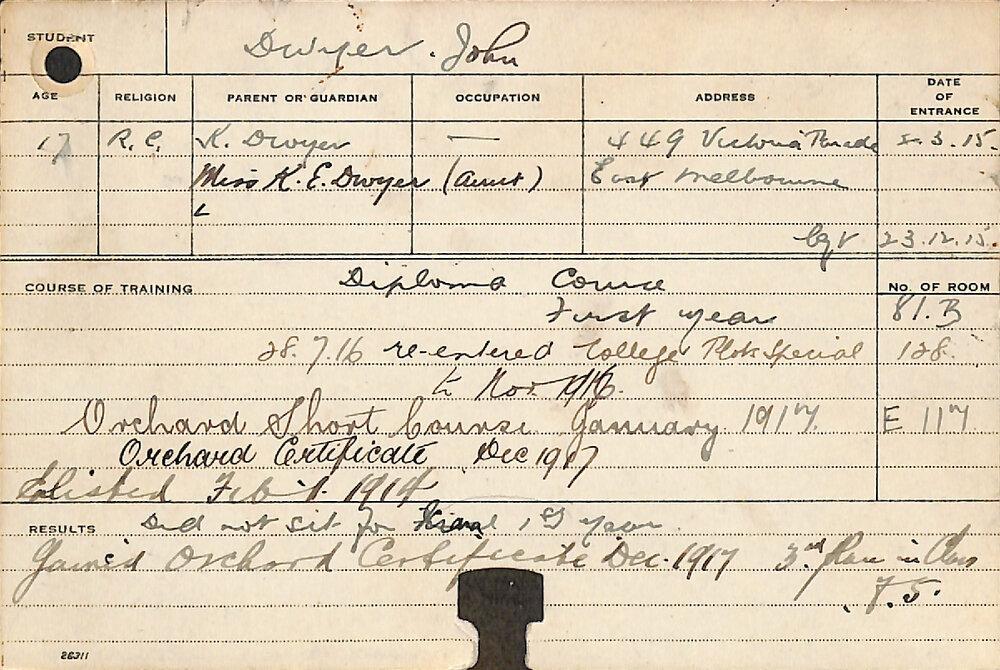 STUDENT Dwyer. John
AGE RELIGION PARENT OR GUARDIAN OCCUPATION ADDRESS DATE OF ENTRANCE
17 R.C. K. Dwyer — 449 Victoria Parade 3.15.
Miss K. E. Dwyer (Aunt) East Melbourne
23.12.15.
COURSE OF TRAINING Diploma Course No. OF ROOM
First year 81.B
28.7.16 re-entered College Plots Special 128.
to Nov. 1916.
Orchard Short Course. January 1917. E 117
Orchard Certificate Dec 1917
Enlisted Feb 1. 1914
RESULTS Did not sit for Final, 1st year.
Gained Orchard Certificate Dec. 1917 3rd place in Class
7.5.
26311